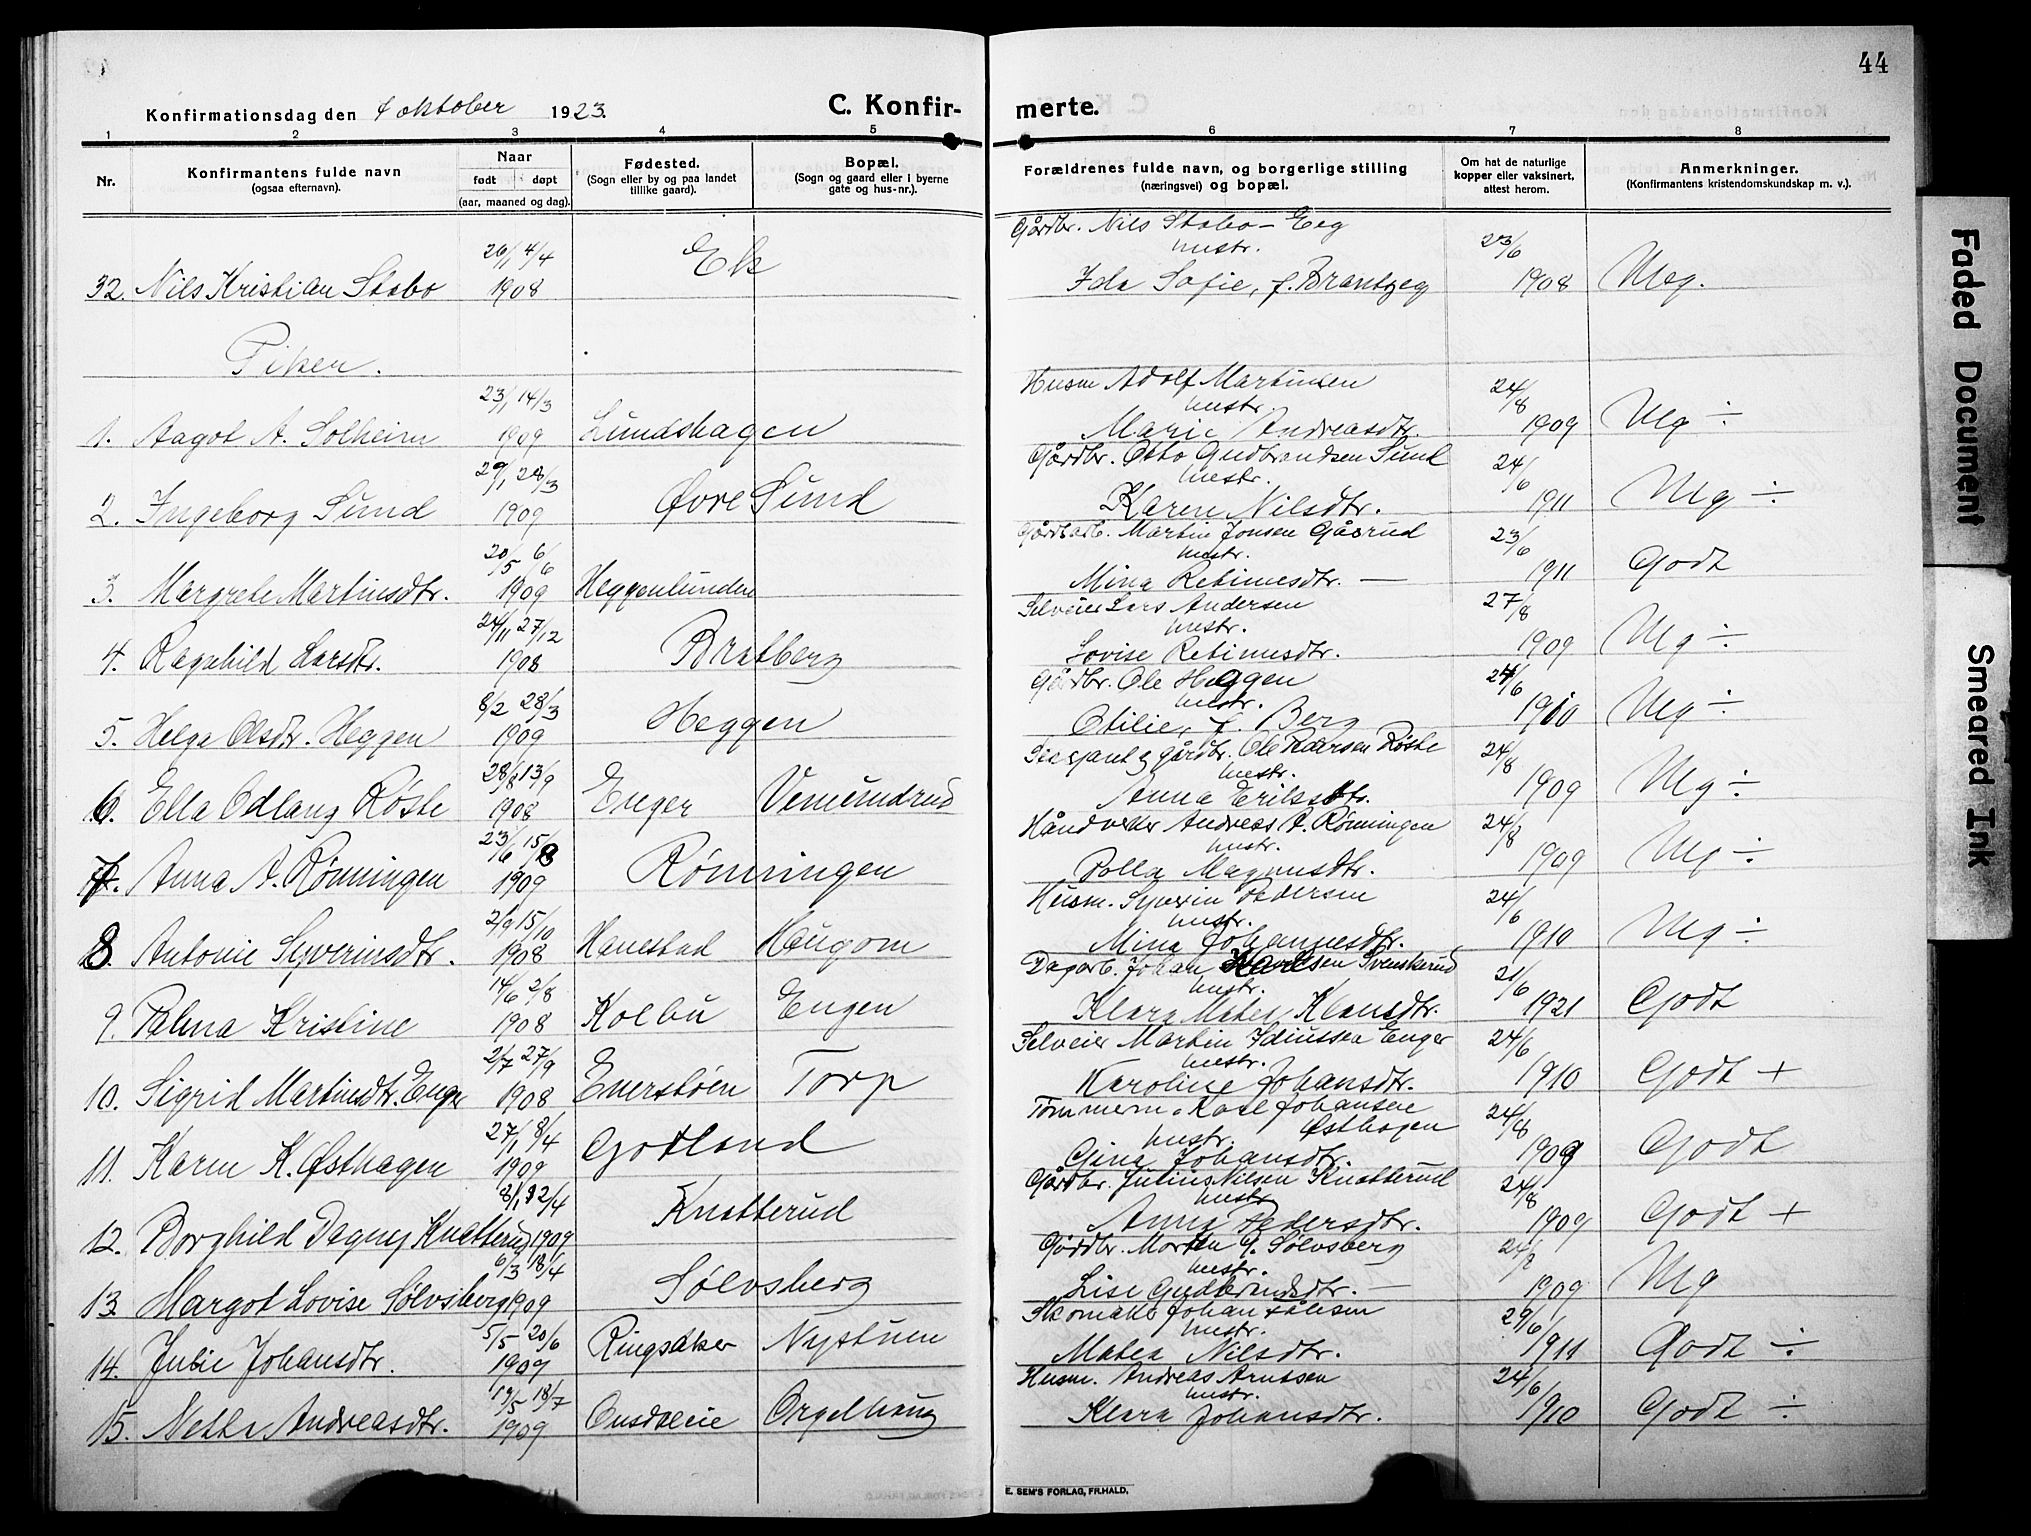 44
Konfirmationsdag den 4 oktober 1923.
C. Konfir-
merte.
1 2 3 4 5 6 7 8
Nr.
Konfirmantens fulde navn
(ogsaa efternavn).
Naar
født døpt
(aar, maaned og dag).
Fødested.
(Sogn eller by og paa landet
tillike gaard).
Bopæl.
(Sogn og gaard eller i byerne
gate og hus-nr.).
Forældrenes fulde navn, og borgerlige stilling
(næringsvei) og bopæl.
Om hat de naturlige
kopper eller vaksinert,
attest herom.
Anmerkninger.
(Konfirmantens kristendomskundskap m. v.).
Gårdbr. Nils Stabo - Eeg
26/1 4/4 Ek hustr. 23/6
32. Nils Kristian Stabo 1908 Ida Sofie, f. Brantzeg 1908 Meg.
Piker.
23/1 14/3 Husm. Adolf Martinsen 24/8
hustr.
1. Aagot A. Solheim 1909 Lundshagen Marie Andreasdtr. 1909 Mg ÷
29/1 28/3 Gårdbr. Otto Gudbrandsen Sund 24/6
hustr.
2. Ingeborg Sund 1909 Øvre Sund Karen Nilsdtr. 1911 Mg ÷
20/5 6/6 Gårdsarb. Martin Jonsen Gåsrud 23/6
hustr.
3. Margrete Martinsdtr. 1909 Heggenlunden Mina Retinusdtr. — 1911 Godt
24/11 27/12 Selveier Lars Andersen 27/8
hustr.
4. Ragnhild Larsdtr. 1908 Bratberg Lovise Retinusdtr. 1909 Mg ÷
8/2 28/3 Gårdbr. Ole Heggen 24/6
hustr.
5. Helga Olsdtr. Heggen 1909 Heggen Otilie, f. Berg 1910 Mg ÷
28/8 13/9 gårdbr. Ole Pedersen Røste 24/8
hustr.
6. Ella Odlaug Røste 1908 Enger Vemundrud Anna Eriksdtr. 1909 Mg ÷
23/6 15/8 Håndverker Andreas A. Rønningen 24/8
hustr.
7. Anna A. Rønningen 1909 Rønningen Polla Magnusdtr. 1909 Mg ÷
2/9 15/10 Husm. Syverin Pedersen 24/6
hustr.
8. Antonie Syverinsdtr. 1908 Hanestad Haugom Mina Johannesdtr. 1910 Mg ÷
14/6 2/8 Dagarb. Johan Karlsen Svenskerud 21/6
hustr.
9. Palma Kristine 1908 Kolbu Engen Klara Matea Klausdtr. 1921 Godt
2/7 27/9 Selveier Martin Edinssen Enger 24/6
hustr.
10. Sigrid Martinsdtr. Enger 1908 Enerstøen Torp Karoline Johansdtr. 1910 Godt +
27/1 8/4 Tømmerm. Karl Johansen 24/8
hustr. Østhagen
11. Karen K. Østhagen 1909 Gotland Gina Johansdtr. 1909 Godt
8/1 12/4 Gårdbr. Julius Nilsen Knatterud 24/8
hustr.
12. Borghild Dagny Knatterud 1909 Knatterud Anna Pedersdtr. 1909 Godt +
6/3 18/4 Gårdbr. Morten G. Sølvsberg
hustr.
13 Margot Lovise Sølvsberg 1909 Sølvsberg Lise Gudbrandsdtr. — 1909 Mg
5/5 20/6 Skomaker Johan 29/6
hustr.
14. Julie Johansdtr. 1909 Ringsaker Nystuen Matea Nilsdtr. 1911 Godt ÷
19/5 18/7 Husm. Andreas Arnssen 24/6
hustr.
15. Netta Andreasdtr. 1909 Onsdaleie Orgelhaug Klara Johansdtr. 1910 Godt ÷
E. SEM'S FORLAG, FR.HALD.
Faded Document
Smeared Ink